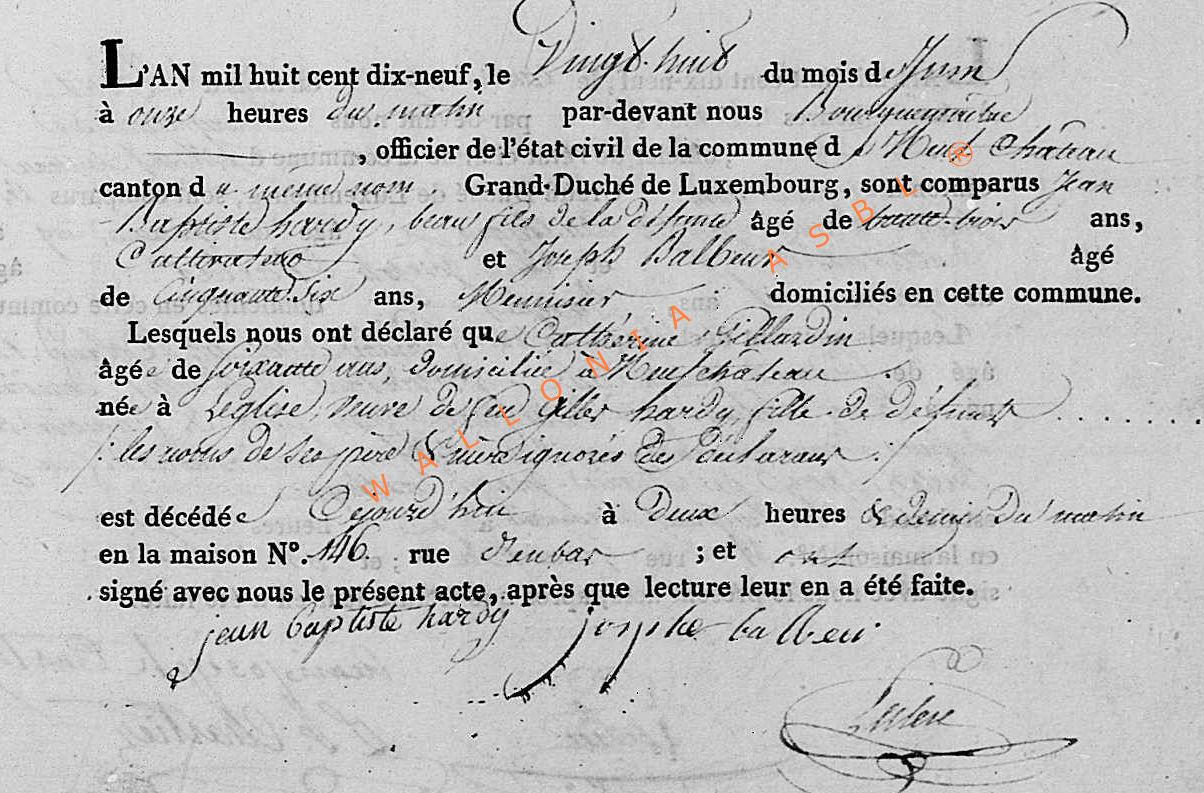 L'AN mil huit cent dix-neuf, le Vingt huit du mois de Juin
à onze heures du matin par-devant nous Bourguemaitre
, officier de l'état civil de la commune de Neufchâteau
canton du même nom Grand-Duché de Luxembourg, sont comparus Jean
Baptiste hardy, beau fils de la défunte âgé de trente-trois ans,
Cultivateur et Joseph Balbeur âgé
de Cinquante-Six ans, Menuisier domiciliés en cette commune.
Lesquels nous ont déclaré que Catherine Gillardin
âgée de soixante ans, domiciliée à Neufchâteau
née à Léglise, veuve de feu Gilles hardy, fille de défunts . . . . . . .
/: les noms de ses père & mère ignorés des déclarans :/
est décédée Cejourd'hui à Deux heures & demie du matin
en la maison N°. 146. rue ; et ont
signé avec nous le présent acte, après que lecture leur en a été faite.
jean baptiste hardy josephe balbeur
WALLONIA ASBL ®